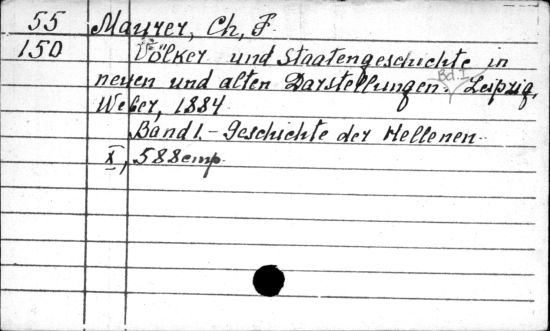 55 Maurer, Ch, F
150 Völker und Staatengeschichte in
neuen und alten Darstellungen. Bd. I. Leipzig,
Weber, 1884
Band I. - Geschichte der Hellenen
X, 588 cmp.